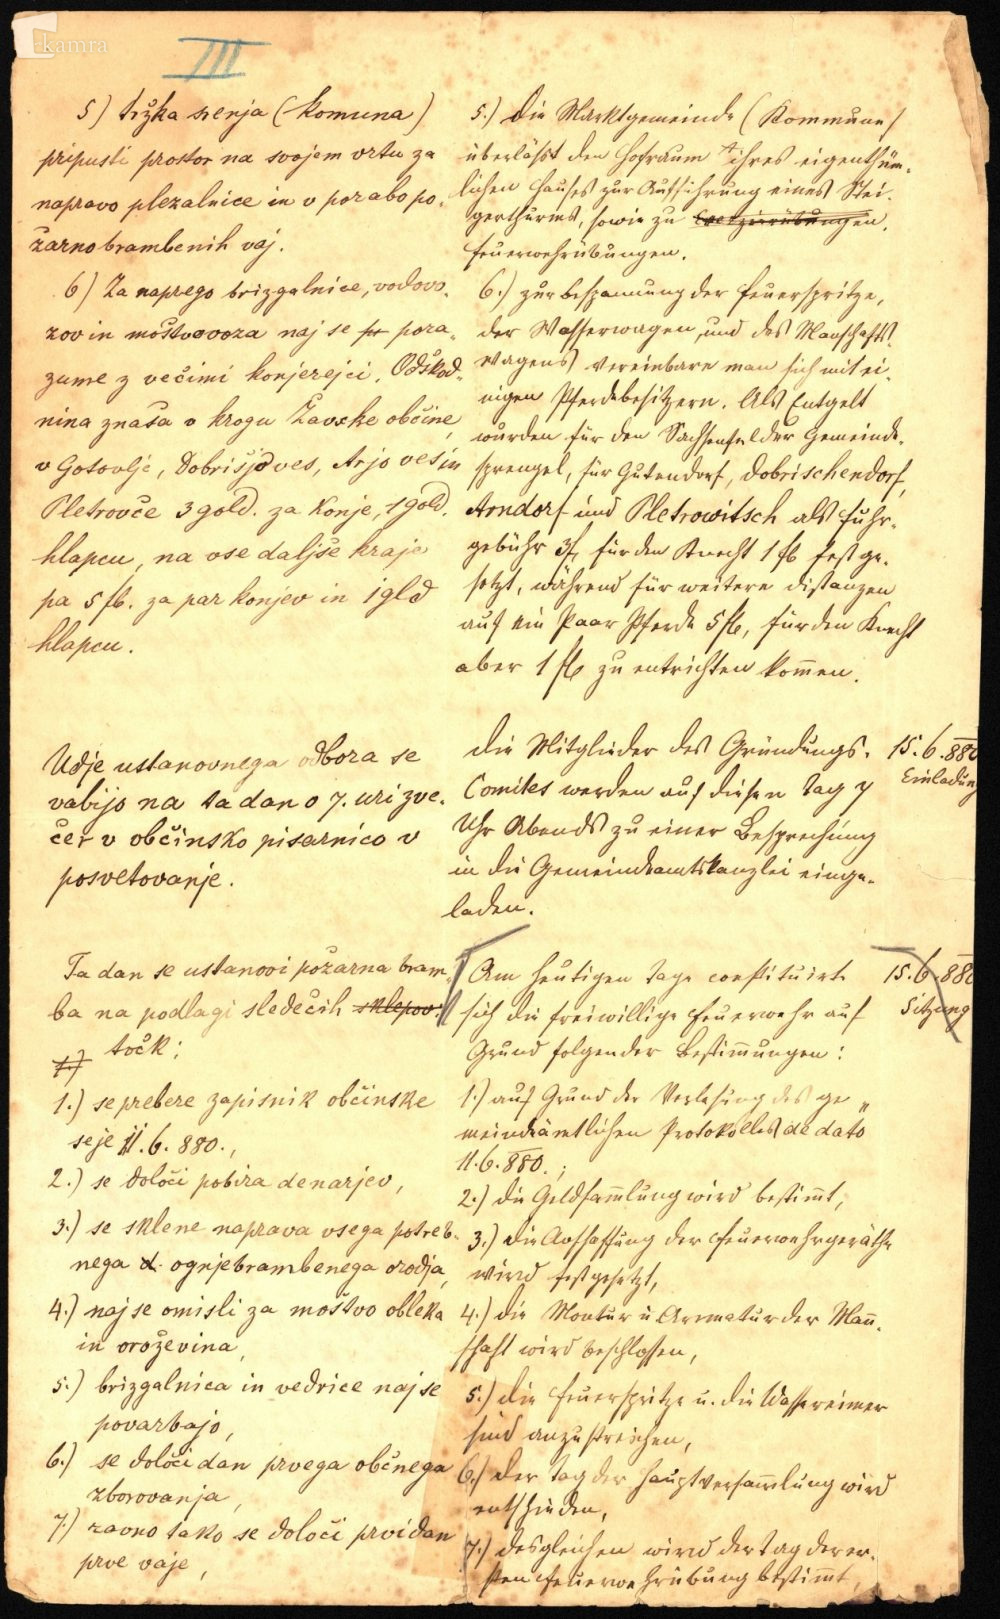 kamra
III
5) tržka srenja (komuna)
pripusti prostor na svojem vrtu za
napravo plezalnice in v porabo po-
žarnobrambenih vaj.
6) Za naprego brizgalnice, vodovo-
zov in moštvovoza naj se pora-
zume z večimi konjerejci. Odškod-
nina znaša v krogu Žavske občine,
v Gotovlje, Dobrišjo ves, Arjo ves in
Pletrovče 3 gold. za konje, 1 gold.
hlapcu, na vse daljše kraje
pa 5 fl. za par konjev in 1 gld
hlapcu.
Udje ustanovnega odbora se
vabijo na ta dan o 7. uri zve-
čer v občinsko pisarnico v
posvetovanje.
Ta dan se ustanovi požarna bram-
ba na podlagi sledečih sklepov:
točk:
1)
1.) se prebere zapisnik občinske
seje 11. 6. 880.,
2.) se določi pobira denarjev,
3.) se sklene naprava vsega potreb-
nega d. ognjebrambenega orodja,
4.) naj se omisli za moštvo obleka
in oroževina,
5.) brizgalnica in vedrice naj se
povarbajo,
6.) se določi dan prvega občnega
zborovanja,
7.) ravno tako se določi prvi dan
prve vaje,
5.) Die Marktgemeinde (Kommune)
überläßt den Hofraum ihres eigenthüm-
lichen Hauses zur Aufführung eines Stei-
gerthurms, sowie zu Exerzierübungen.
Feuerwehrübungen.
6.) Zur Bespannung der Feuerspritze,
der Wasserwagen, und des Manschafts-
wagens vereinbare man sich mit ei-
nigen Pferdebesitzern. Als Entgelt
wurden für den Sachsenfelder Gemeinde-
sprengel, für Gutendorf, Dobrischendorf,
Arndorf und Pletrowitsch als Fuhr-
gebühr 3 f, für den Knecht 1 fl festge-
setzt, während für weitere Distanzen
auf ein Paar Pferde 5 fl, für den Knecht
aber 1 fl zu entrichten kommen.
Die Mitglieder des Gründungs-
Comites werden auf diesen Tag 7
Uhr Abends zu einer Besprechung
in die Gemeindeamtskanzlei einge-
laden.
15. 6. 880
Einladung
Am heutigen Tage constituirte
sich die freiwillige Feuerwehr auf
Grund folgender Bestimmungen:
15. 6. 880
Sitzung
1.) auf Grund der Verlesung des ge-
meindeämtlichen Protokolles de dato
11. 6. 880.;
2.) die Geldsammlung wird bestimmt,
3.) die Anschaffung der Feuerwehrgeräthe
wird festgesetzt,
4.) die Montur u Armatur der Mann-
schaft wird beschlossen,
5.) die Feuerspritze u. die Wassereimer
sind anzustreichen,
6.) der Tag der Hauptversammlung wird
entschieden,
7.) desgleichen wird der Tag der er-
sten Feuerwehrübung bestimmt,